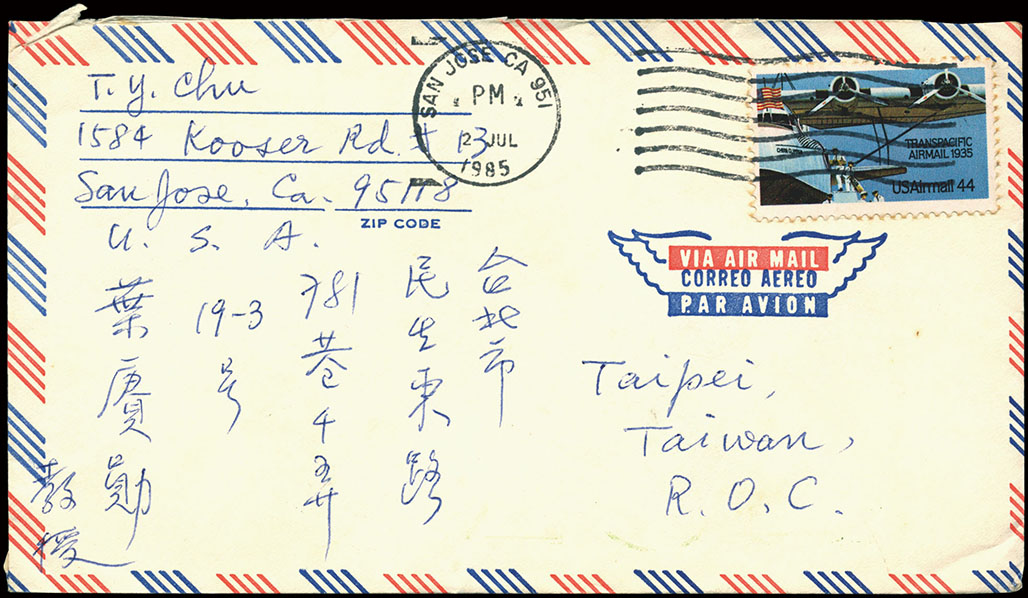 T. Y. Chu
1584 Kooser Rd. # 13
San Jose, Ca. 95118
ZIP CODE
U. S. A.
SAN JOSE CA 951
PM
2 JUL
1985
TRANSPACIFIC
AIRMAIL 1935
USAirmail 44
VIA AIR MAIL
CORREO AEREO
PAR AVION
台北市
民生東路
781巷4弄
19-3号
葉賡勛
教授
Taipei,
Taiwan,
R.O.C.